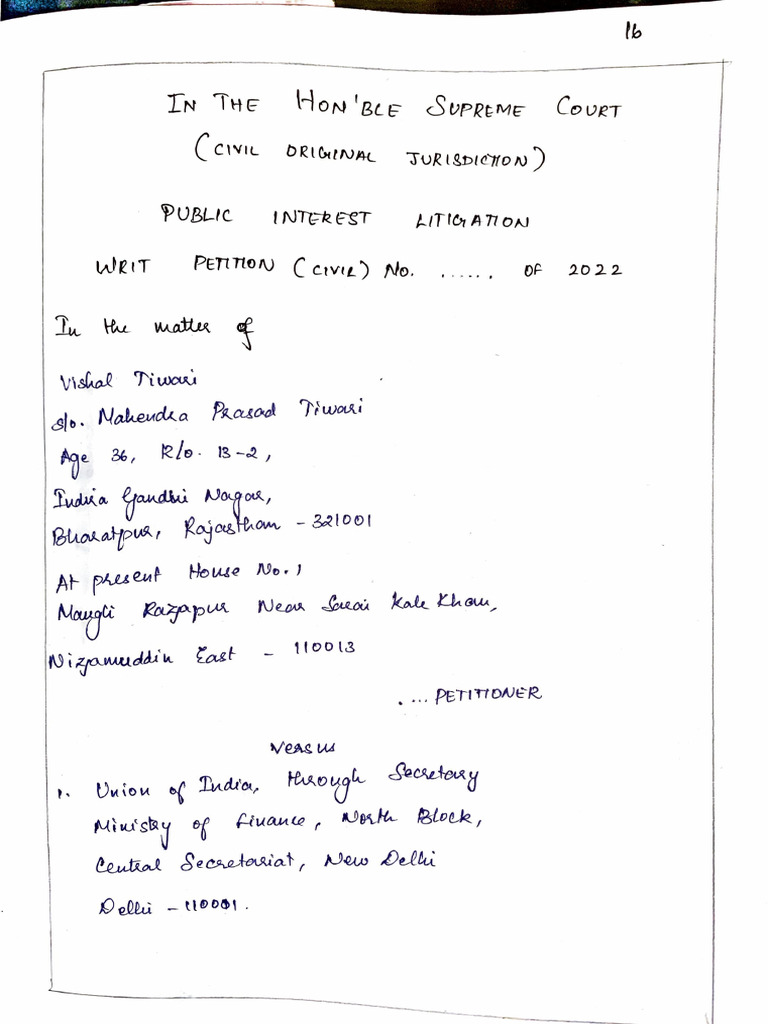 16
IN THE HON'BLE SUPREME COURT
(CIVIL ORIGINAL JURISDICTION)
PUBLIC INTEREST LITIGATION
WRIT PETITION (CIVIL) NO. ...... OF 2022
In the matter of
Vishal Tiwari
s/o. Mahendra Prasad Tiwari
Age 36, R/o. 13-2,
Indira Gandhi Nagar,
Bharatpur, Rajastham - 321001
At present House No. 1
Maugli Razapur Near Sarai Kale Kham,
Nizamuddin East - 110013
.... PETITIONER
Versus
1. Union of India, through Secretary
Ministry of finance, North Block,
Central Secretariat, New Delhi
Delhi - 110001.